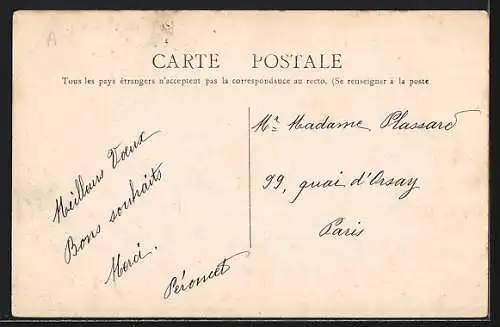 A
CARTE POSTALE
Tous les pays étrangers n'acceptent pas la correspondance au recto. (Se renseigner à la poste
Meilleurs Vœux
Bons souhaits
Merci.
Péroncet
Mr Madame Plassard
99, quai d'Orsay
Paris